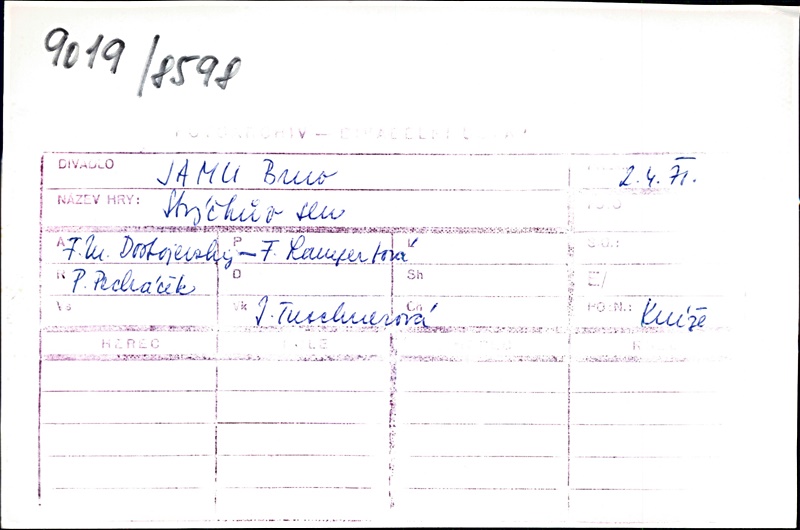 9019/8598
FOTOARCHIV — DIVADELNÍ
DIVADLO JAMU Brno 2.4.71.
NÁZEV HRY: Strýčkův sen
A F. M. Dostojevskij – F. Kampertová
R P. Pecháček D Sh
Vs Vk J. Tuschnerová Ch POZN.: Kníže
HEREC